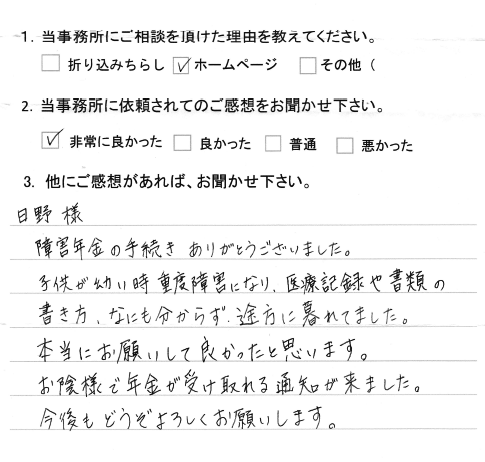 1. 当事務所にご相談を頂けた理由を教えてください。
□ 折り込みちらし ☑ ホームページ □ その他（
2. 当事務所に依頼されてのご感想をお聞かせ下さい。
☑ 非常に良かった □ 良かった □ 普通 □ 悪かった
3. 他にご感想があれば、お聞かせ下さい。
日野 様
障害年金の手続き ありがとうございました。
子供が幼い時 重度障害になり、医療記録や書類の
書き方、なにも分からず、途方に暮れてました。
本当にお願いして良かったと思います。
お陰様で年金が受け取れる通知が来ました。
今後も どうぞよろしくお願いします。